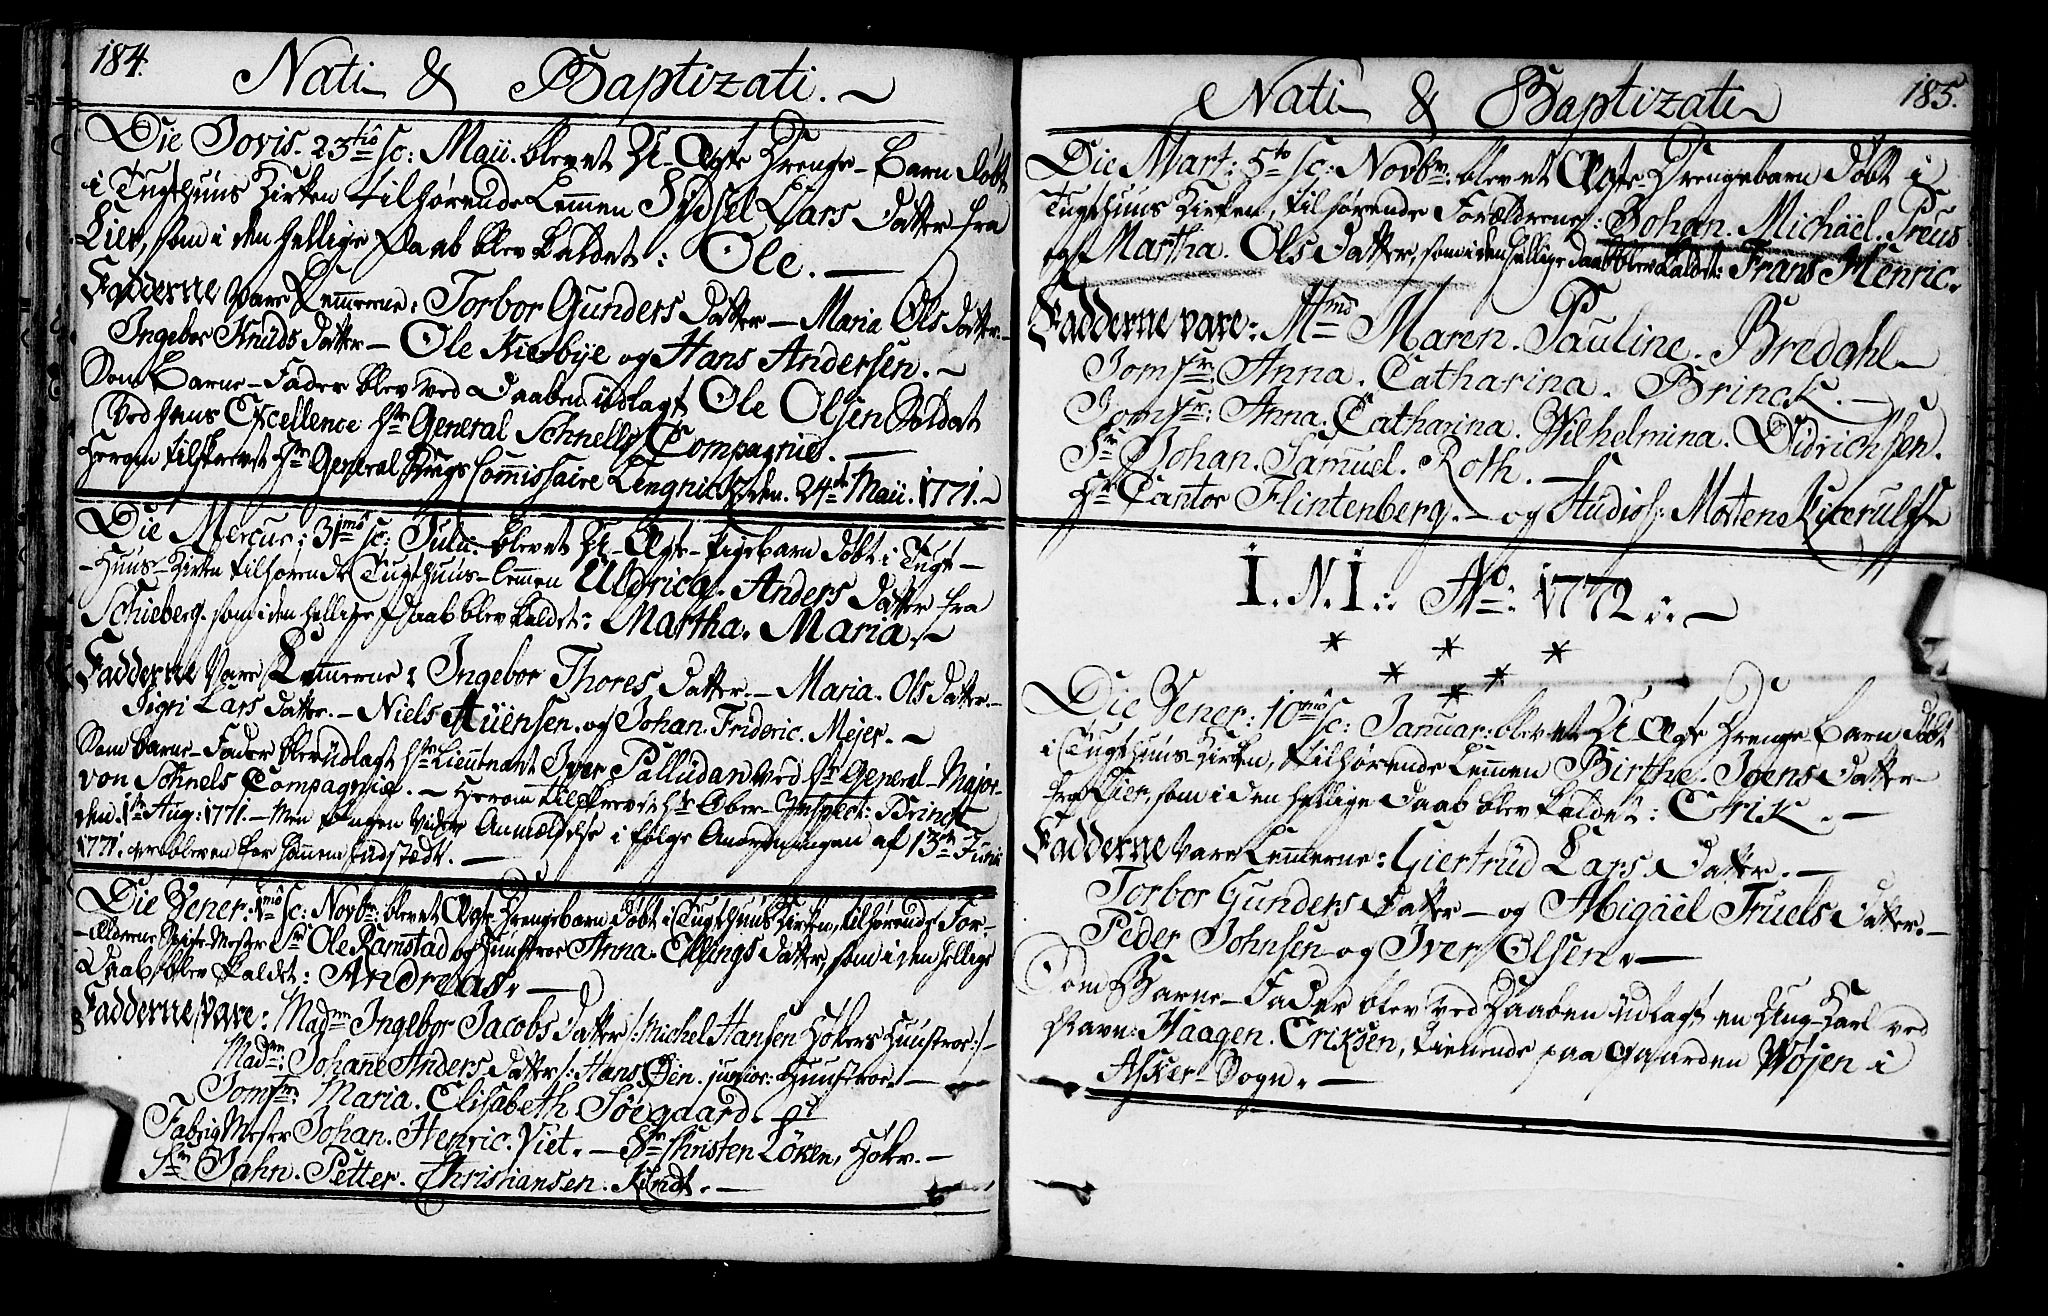 184.
Nati & Baptizati.
Die Jovis. 23tiô Sc: Maii. blev et U-Ægte Drenge-Barn døbt
i Tugthuus Kirken tilhørende Lemmen Sidsel Lars Datter fra
Lier, som i den hellige Daab blev kaldet: Ole.
Fadderne vare Lemmerne: Torbor Gunders Datter — Maria Ols Datter —
Ingebor Knuds Datter — Ole Kierbye og Hans Andersen.
Som Barne-Fader blev ved Daaben udlagt Ole Olsen Soldat
ved hans Excellence Hr General Schnells Compagnie.
Herom tilskrevet Hr General Krigs Commissaire Lengnick den. 24de Maii. 1771.
Die Mercur: 31mô Sc: Julii. blev et U-Ægte-Pigebarn døbt i Tugt-
-Huus-Kirken tilhørende Tugthuus-Lemmen Uldrica. Anders Datter fra
Schieberg. som i den hellige Daab blev kaldet: Martha. Maria.
Fadderne vare Lemmerne: Ingebor Thores Datter. — Maria. Ols Datter. —
Sigri Lars Datter. — Niels Auensen. og Johan. Frideric. Mejer.
Som Barne-Fader blev udlagt Hr Lieutnant Iver Palludan ved Hr General-Major
von Schnels Compagnie. — Herom tilskrevet Hr Ober-Inspect: Brinck
den. 1te Aug: 1771. — Men ingen videre Anmældelse i følge Anordningen af 13de Junii
1771. er bleven for hannem tilstædt.
Die Vener: 1mô Sc: Novbr: blev et Ægte Drengebarn døbt i Tugthuus Kirken, tilhørende For-
-ældrene Spise-Mester Sr Ole Ramstad og Hustroe Anna. Ellings Datter, som i den hellige
Daab blev kaldet: Andreas.
Fadderne vare: Madme Ingebor Jacobs Datter /: Michel Hansen Høkers Huustroe :/
Madme: Johanne Anders Datter /: Hans Øen. junior: Huustroe.
Jomfr: Maria. Elisabeth Söegaard.
Fabriq Mester Johan. Henric. Viet. — Sr Christen Löken, Høker. —
Sr Jahn. Petter. Christiansen.
185.
Nati & Baptizati
Die Mart: 5to Sc: Novbr: blev et Ægte-Drengebarn døbt i
Tugthuus Kirken, tilhørende Forældrene: Johan. Michäel. Preus
og Martha. Ols Datter, som i den hellige Daab blev kaldet: Frans Henric.
Fadderne vare: Mmd Maren. Pauline. Bredahl
Jomfr: Anna. Catharina. Brinck.
Jomfr: Anna. Catharina. Wilhelmina. Didrichsen.
Sr Johan. Samuel. Roth.
Hr Cantor Flintenberg. — og Studios: Morten Kierulff
I. N. I.: Ao: 1772.
* * * * * *
Die Vener: 10mô Sc: Januar: blev et U-Ægte Drenge-Barn døbt
i Tugthuus Kirken, tilhørende Lemmen Birthe. Joens Datter
fra Lier, som i den hellige Daab blev kaldet: Erik.
Fadderne vare Lemmerne: Giertrud Lars Datter.
Torbor Gunders Datter — og Abigäel Truels Datter.
Peder Johnsen og Iver Olsen.
Som Barne-Fader blev ved Daaben udlagt en Ung-Karl ved
Navn: Haagen. Eriksen, tienende paa Gaarden Wøjen i
Asker Sogn.